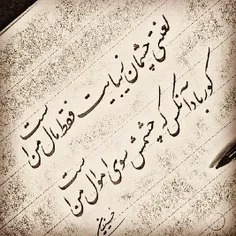 لعنتی چشمان زیبایت فقط مال من است
کور بادا آنکس که چشمش سوی اموال من است